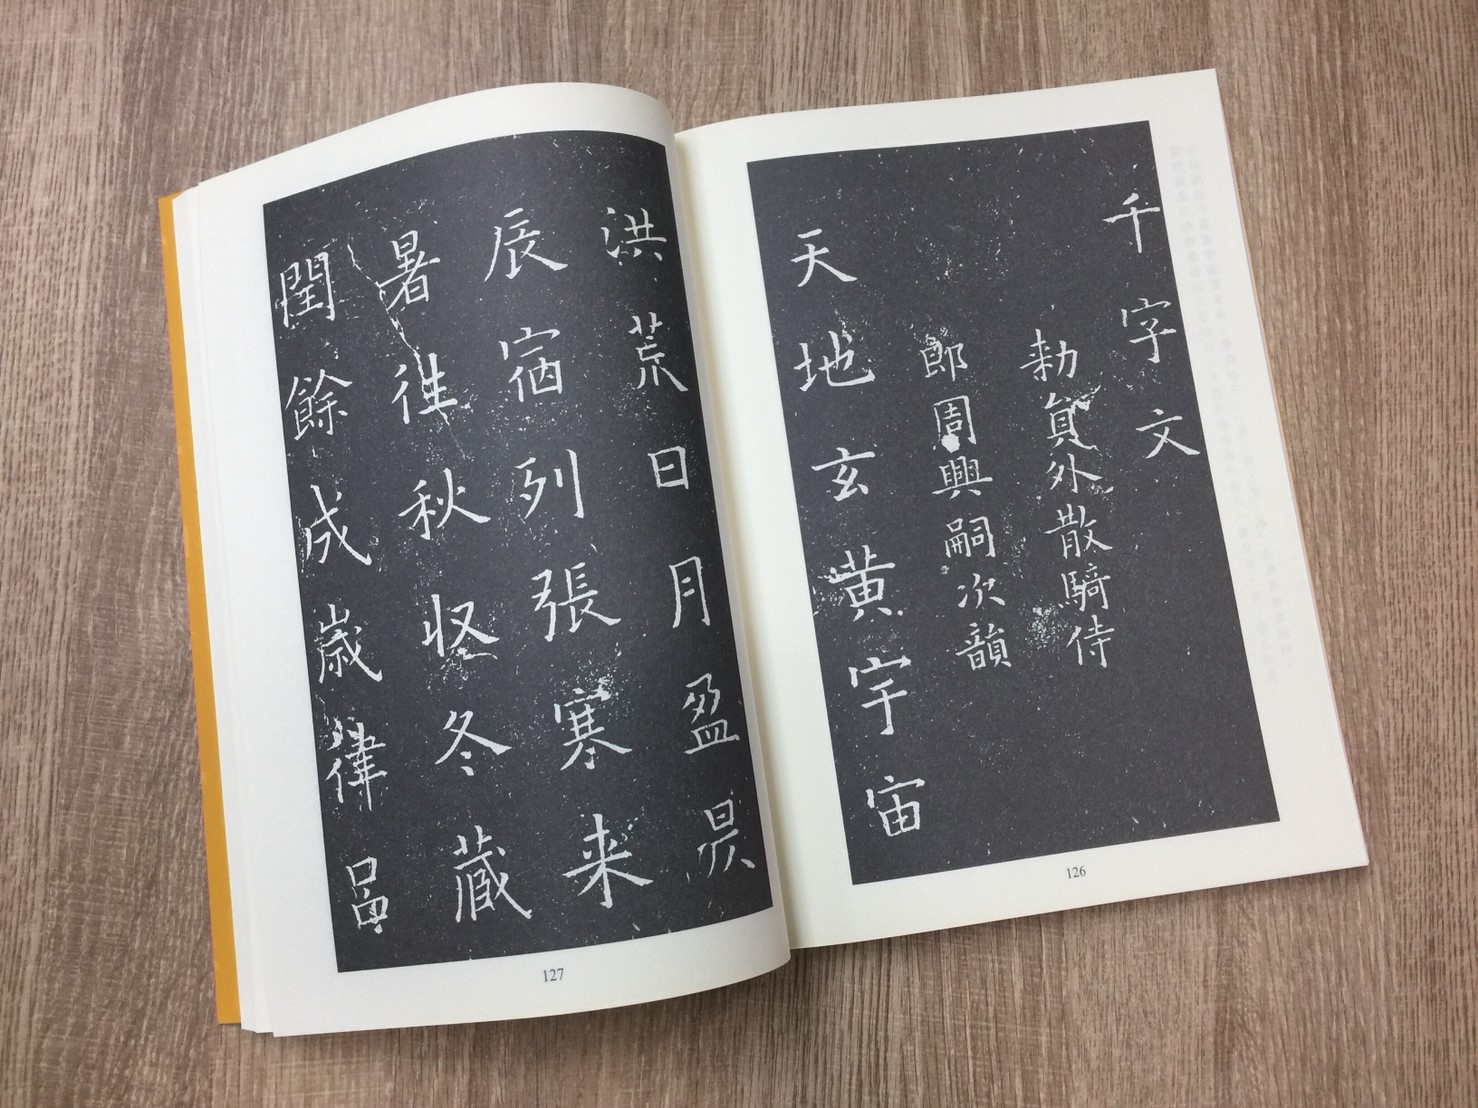 千字文
勅員外散騎侍
郎周興嗣次韻
天地玄黄宇宙
126
洪荒日月盈昃
辰宿列張寒来
暑往秋収冬蔵
閏餘成歳律呂
127